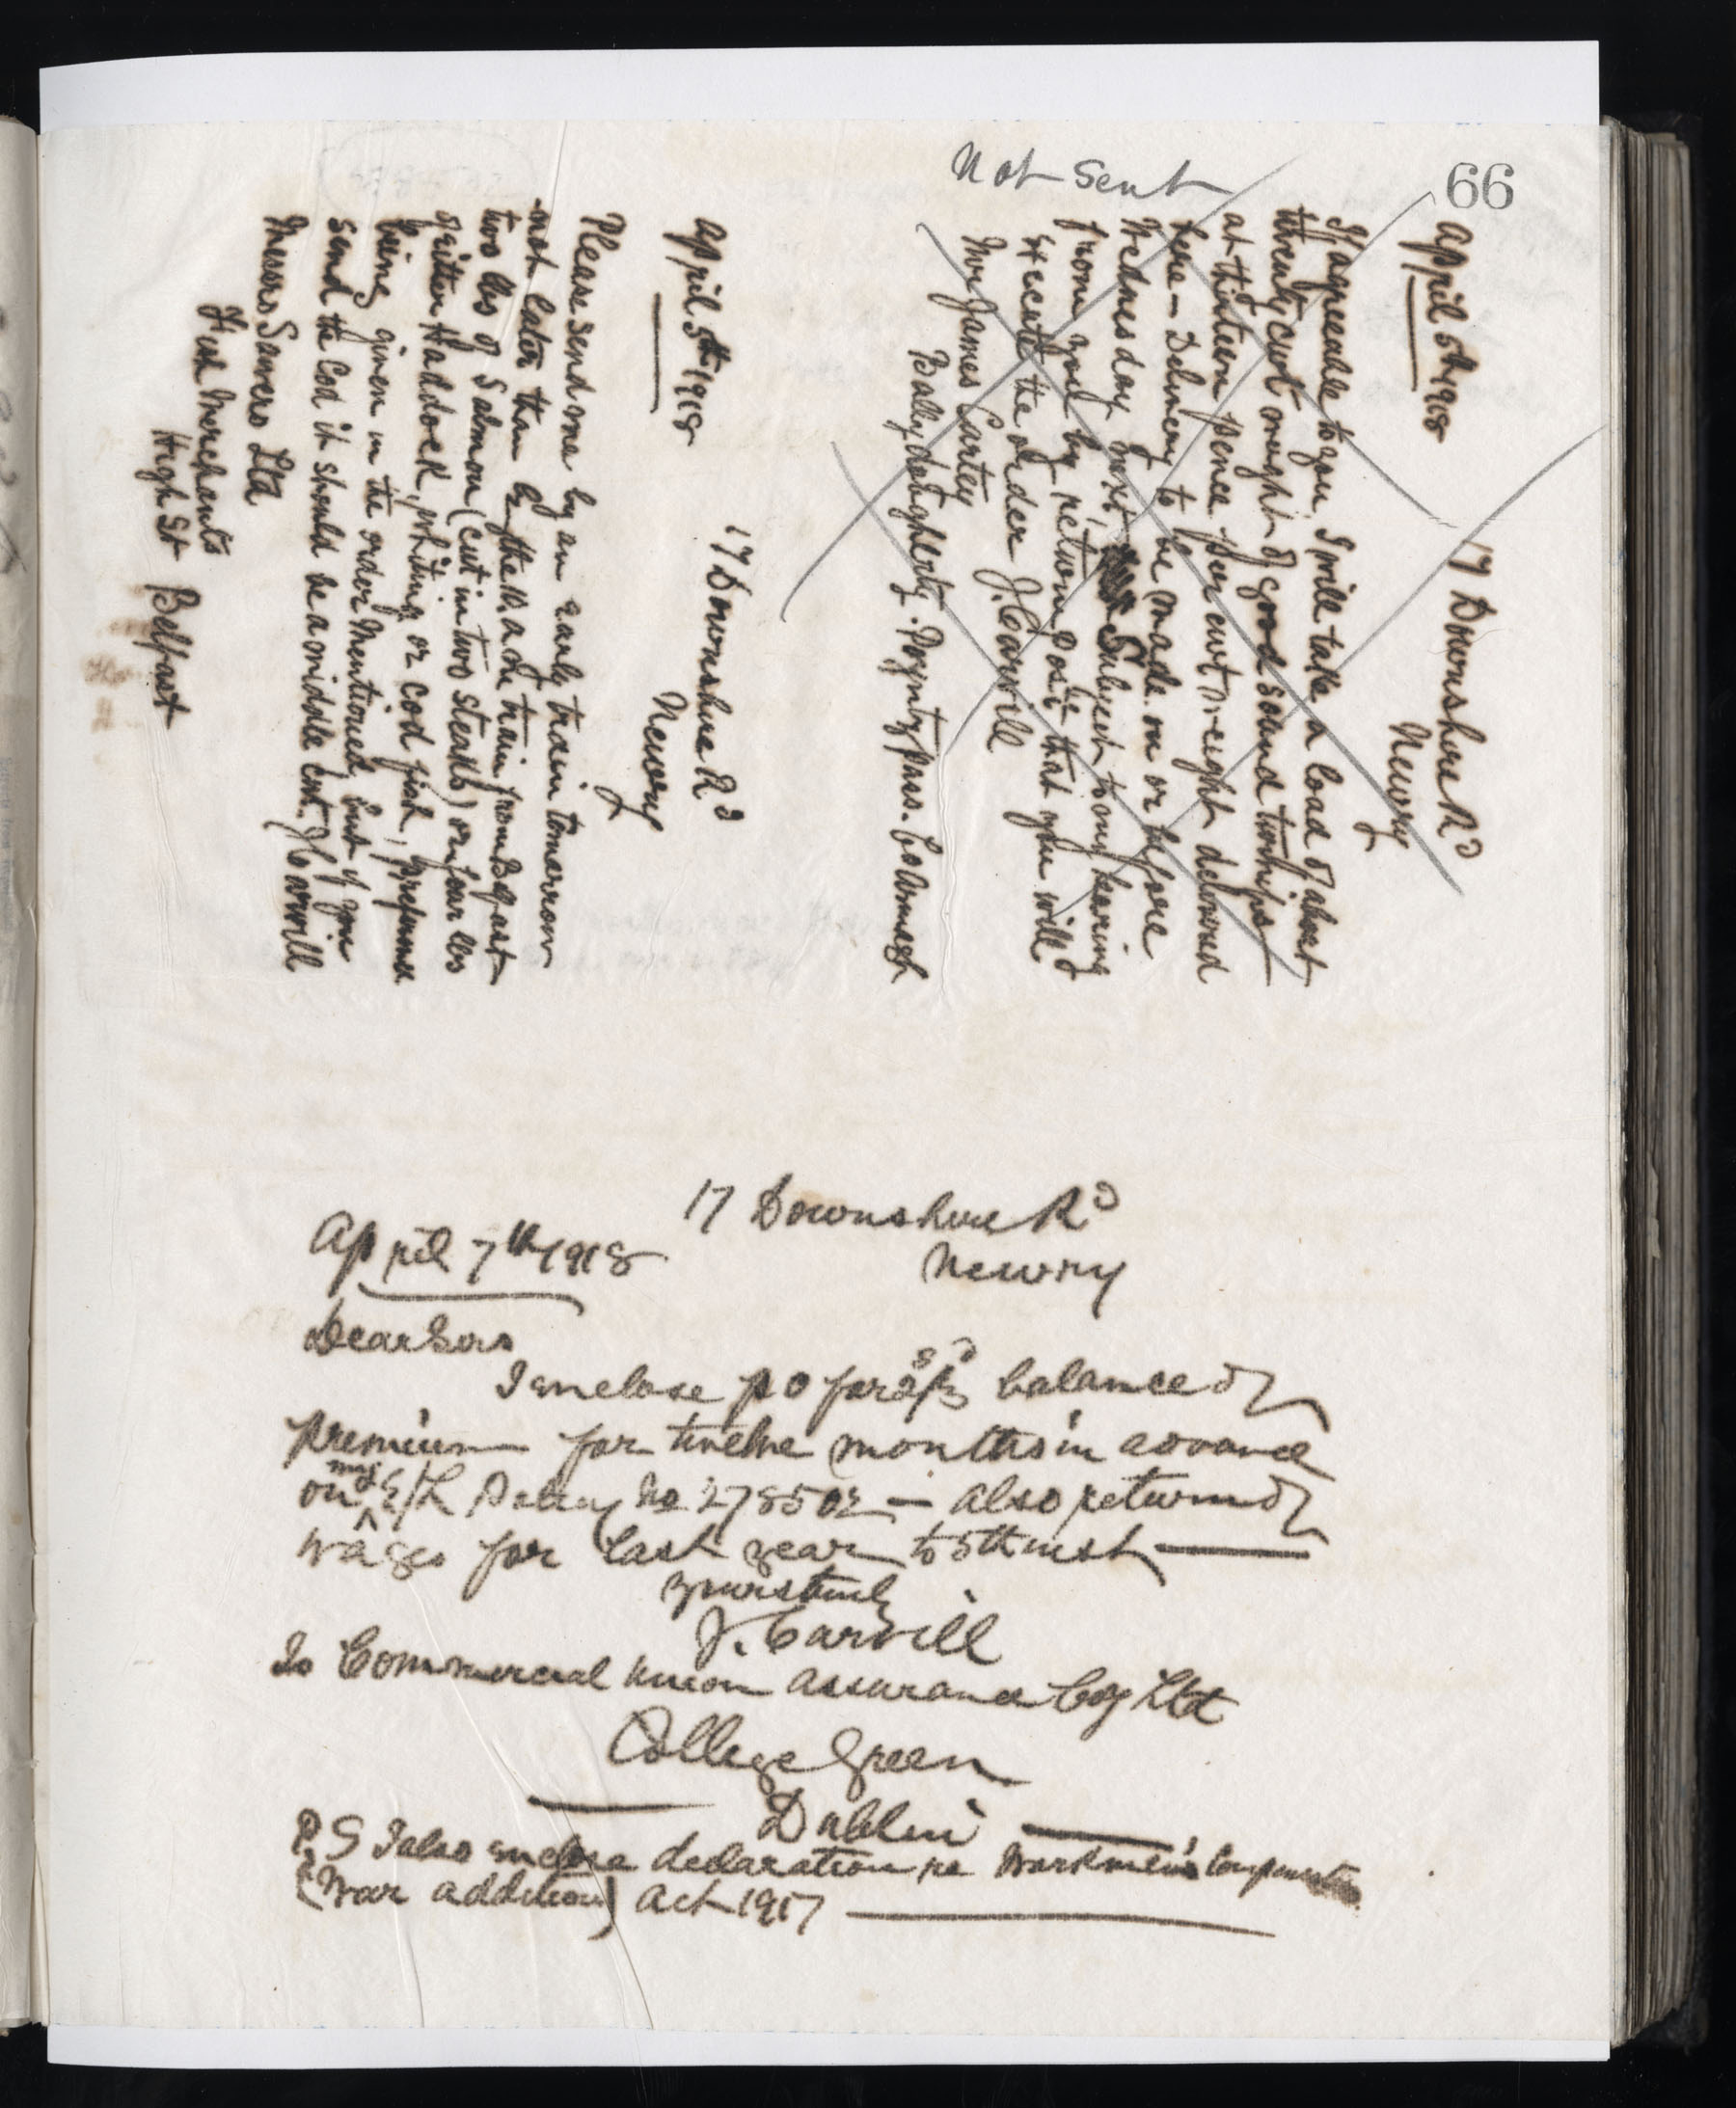 66
Not Sent
17 Downshire Rd
Newry
April 5th 1918
If agreeable to you I will take a load of about
twenty cwt weight of good sound turnips
at thirteen pence per cwt weight delivered
here - Delivery to be made on or before
Wednesday next, Subject to my hearing
from you by return post that you will
execute the order J. Carvill
Mr James Cartey
Ballydougherty. Poyntzpass. Co Armagh
17 Downshire Rd
Newry
April 5th 1918
Please send me by an early train tomorrow
not later than by the 10. a m train from Belfast
two lbs of Salmon (cut in two steaks) or four lbs
of either Haddock, whiting or cod fish, preference
being given in the order mentioned, but if you
send the Cod it should be a middle cut. J Carvill
Messrs Sawers Ltd
Fish Merchants
High St Belfast
17 Downshire Rd
Newry
April 7th 1918
Dear Sirs
I enclose p o for balance of
premium for twelve months in advance
on my E/L Policy No 278502 - also return of
wages for last year to 5th inst
yours truly
J. Carvill
To Commercial Union Assurance Coy Ltd
College Green
Dublin
P. S I also enclose declaration re Workmen's Compensation
(War addition) Act 1917